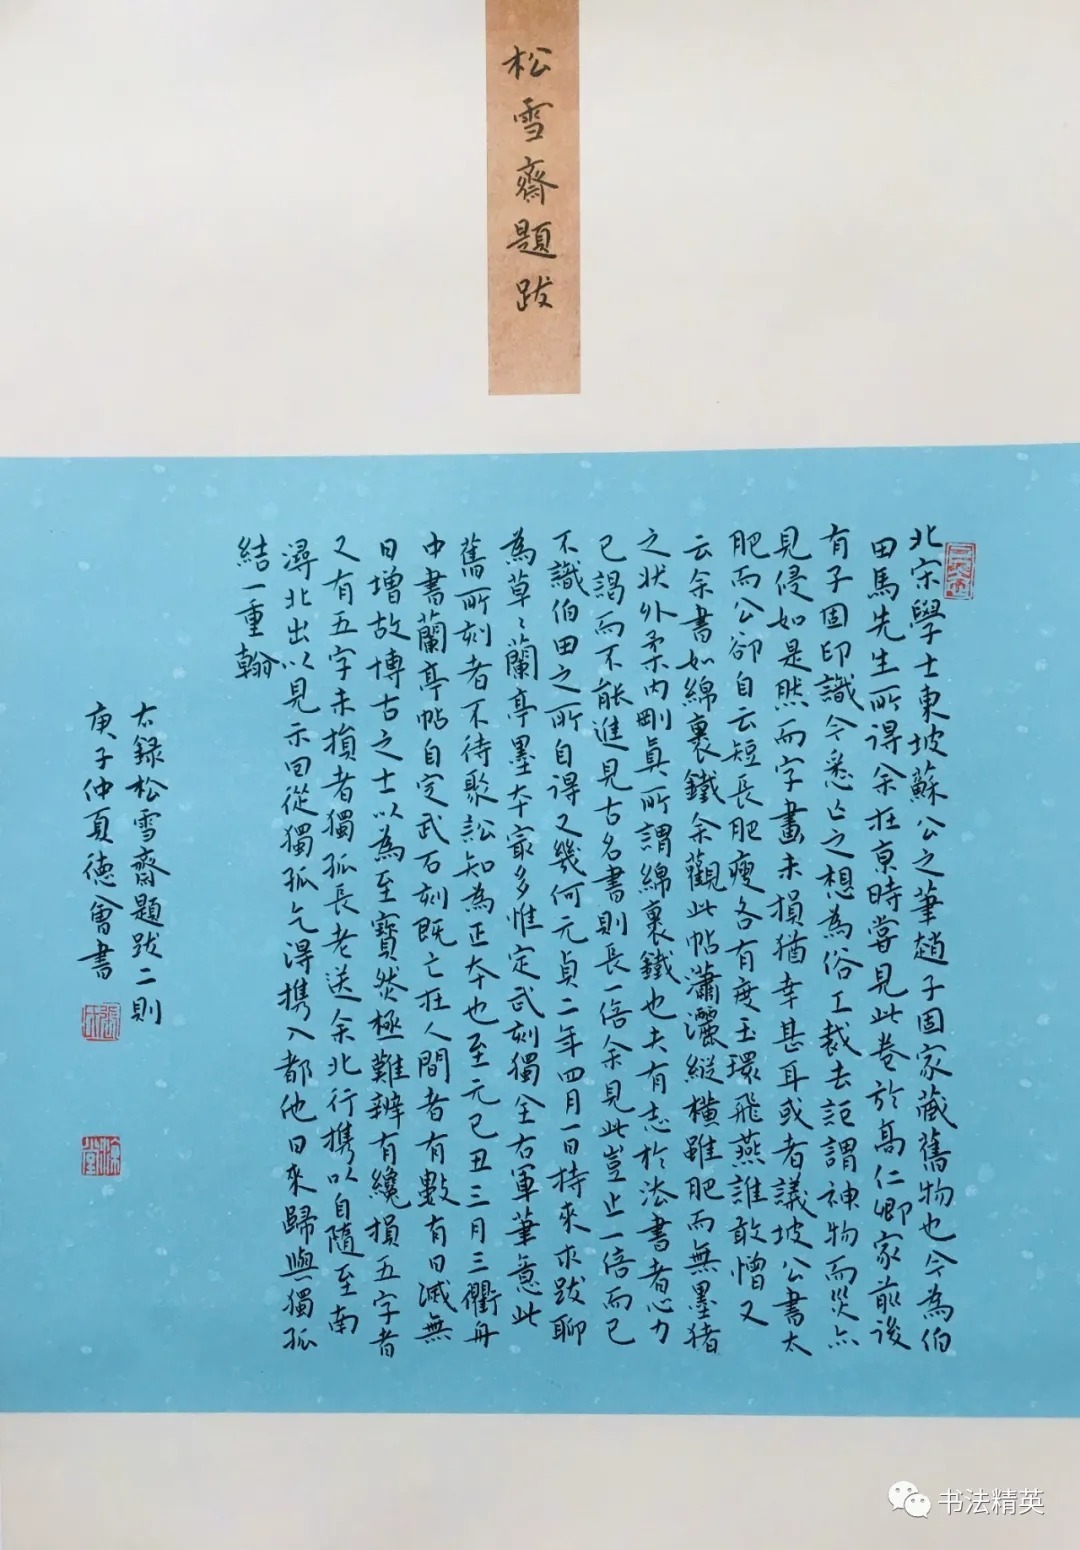 松雪齋題跋
北宋學士東坡蘇公之筆趙子固家藏舊物也今為伯
田馬先生所得余在京時嘗見此卷於高仁卿家前後
有子固印識今悉亡之想為俗工裁去詎謂神物而災亦
見侵如是然而字畫未損猶幸甚耳或者議坡公書太
肥而公卻自云短長肥瘦各有度玉環飛燕誰敢憎又
云余書如綿裏鐵余觀此帖瀟灑縱橫雖肥而無墨猪
之狀外柔内剛真所謂綿裏鐵也夫有志於法書者心力
已謁而不能進見古名書則長一倍余見此豈止一倍而已
不識伯田之所自得又幾何元貞二年四月一日持來求跋聊
為草〻蘭亭墨本最多惟定武刻獨全右軍筆意此
舊所刻者不待聚訟知為正本也至元己丑三月三衢舟
中書蘭亭帖自定武石刻既亡在人間者有數有日減無
日增故博古之士以為至寶然極難辨有纔損五字者
又有五字未損者獨孤長老送余北行携以自隨至南
潯北出以見示因從獨孤乞得携入都他日來歸與獨孤
結一重翰
右錄松雪齋題跋二則
庚子仲夏德會書
书法精英